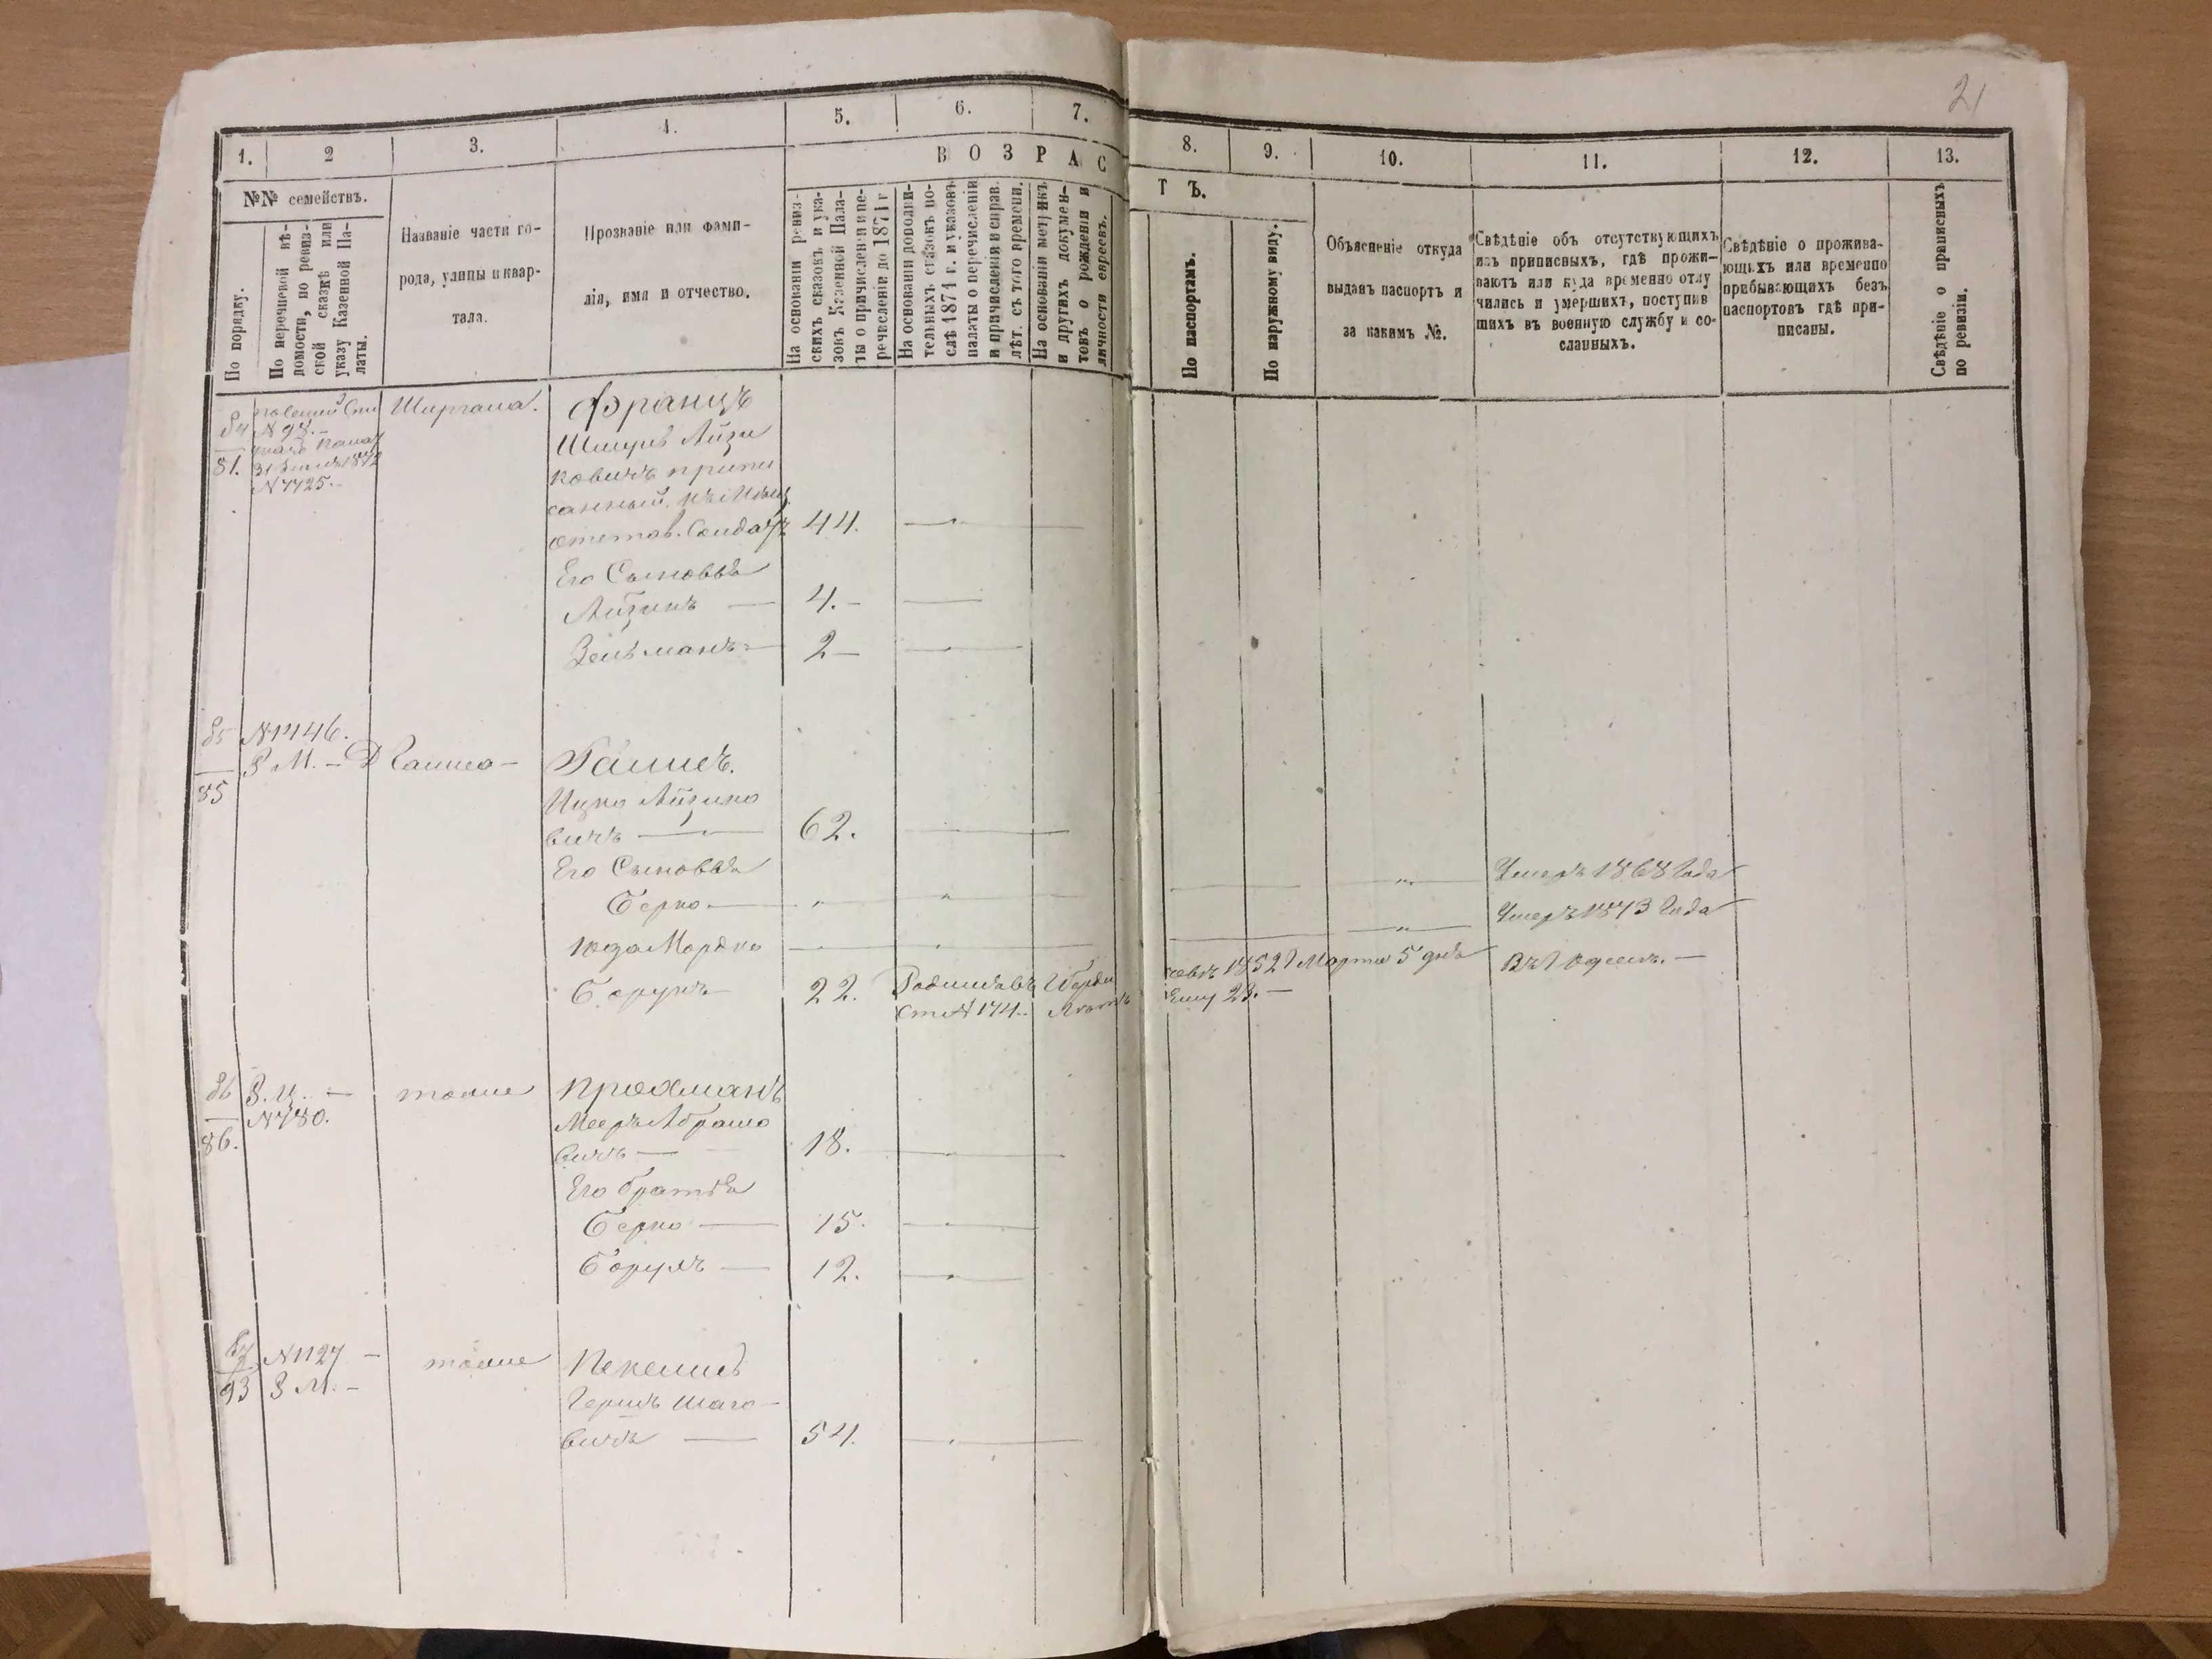 21
1.
2
3.
4.
5.
6.
7.
8.
9.
10.
11.
12.
13.
В О З Р А С
Т Ъ.
№№ семействъ.
По порядку.
По перечневой вѣ-
домости, по ревиз-
ской сказкѣ или
указу Казенной Па-
латы.
Названіе части го-
рода, улицы и квар-
тала.
Прозваніе или фами-
лія, имя и отчество.
На основаніи ревиз-
скихъ сказокъ и ука-
зовъ Казенной Пала-
ты о причисленіи и пе-
речисленіи до 1874 г
На основаніи дополни-
тельныхъ сказокъ по-
слѣ 1874 г. и указовъ
палаты о перечисленіи
и причисленіи и справ.
лѣт. съ того времени.
На основаніи метрикъ
и другихъ докумен-
товъ о рожденіи и
личности евреевъ.
По паспортамъ.
По наружному виду.
Объясненіе откуда
выданъ паспортъ и
за какимъ №.
Свѣдѣніе объ отсутствующихъ
изъ приписныхъ, гдѣ прожи-
ваютъ или куда временно отлу
чились и умершихъ, поступив
шихъ въ военную службу и со-
сланныхъ.
Свѣдѣніе о прожива-
ющихъ или временно
прибывающихъ безъ
паспортовъ гдѣ при-
писаны.
Свѣдѣніе о приписныхъ
по ревизіи.
84
81.
№ 98.-
№ 7725.-
Францъ
Айзи
ковичъ припи
санный
отстав. Солдатъ 44.
Его Сыновья
Айзикъ — 4.-
Зельманъ 2-
85
85
№ 1146.
З М. -
Ицко Айзико
вичъ — 62.
Его Сыновья
Берко — Умеръ 1868 Года
Юда Мордко Умеръ 1873 Года
Борухъ 22. Родился въ Бердичевѣ 1852 Марта 5 дня
Ст № 174. Ему 21.-
86
86.
№ 780.
тоже
Прохманъ
Мееръ Абрамо
вичъ — 18.
Его братья
Берко — 15.
Борухъ — 12.
87
93
№ 1127 -
З М. -
тоже
Гершъ
вичъ — 54.